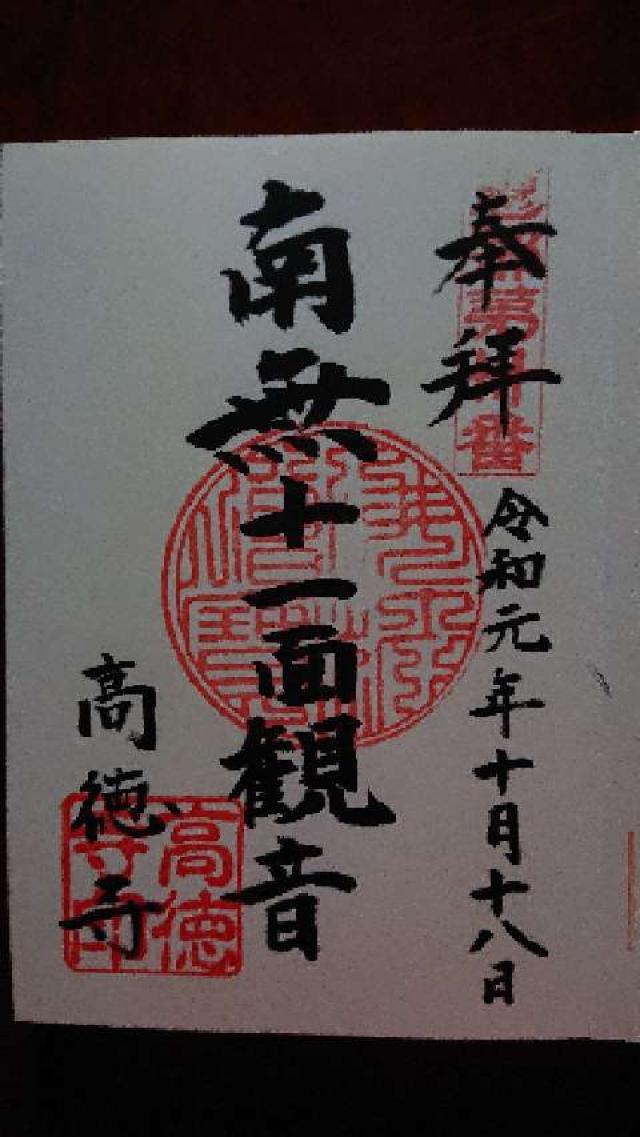 奉拝
令和元年十月十八日
南無十一面観音
高徳寺
高徳寺印